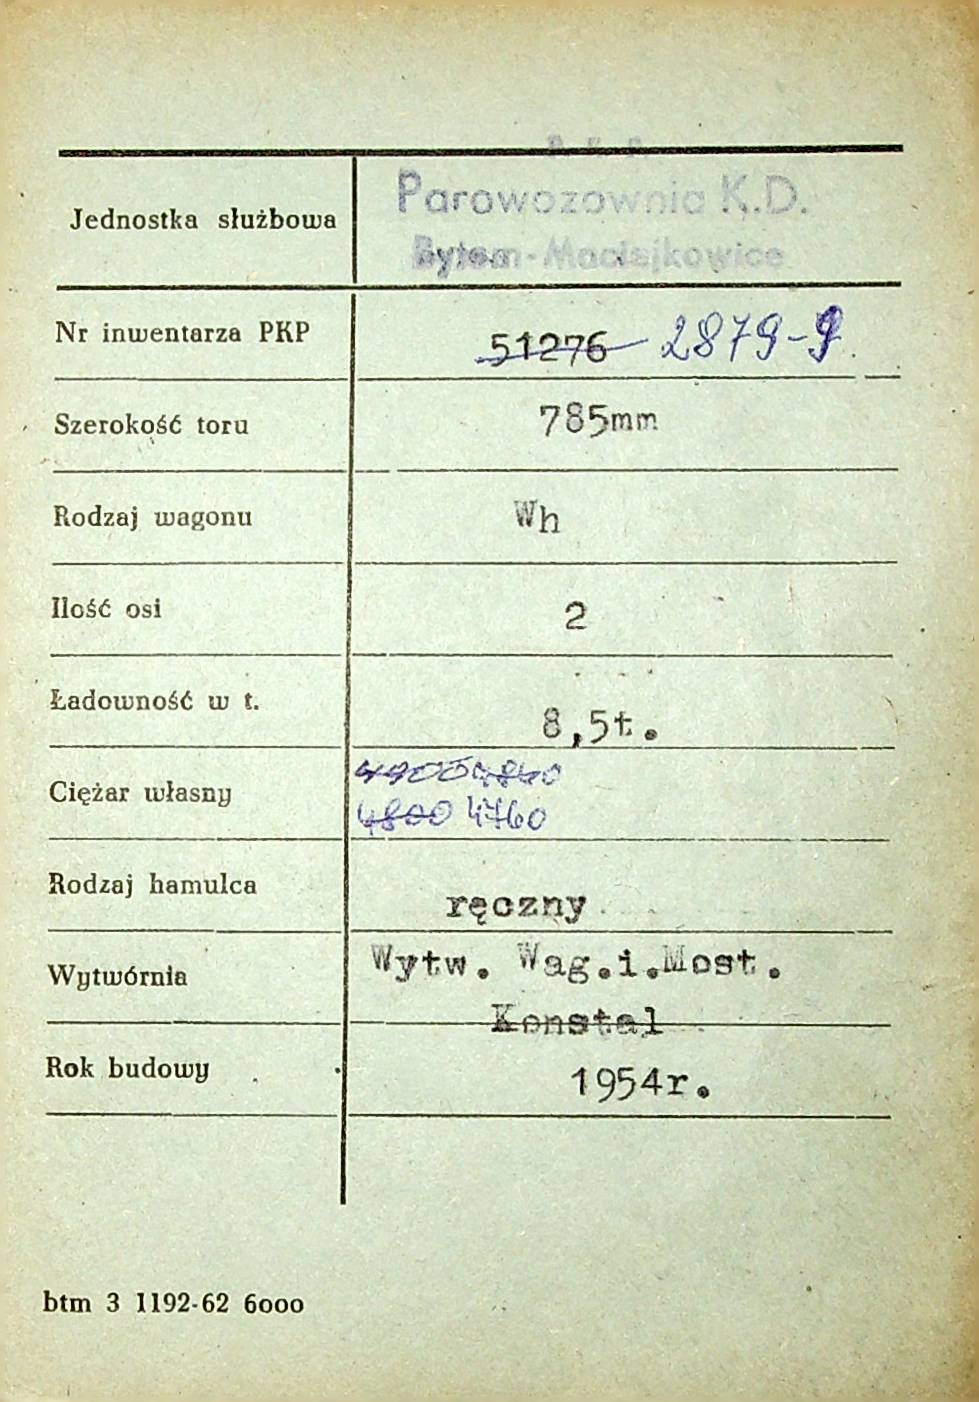 P.K.P.
Jednostka służbowa
Parowozownia K.D.
Bytom-Maciejkowice
Nr inwentarza PKP 51276 2879-9
Szerokość toru 785mm
Rodzaj wagonu Wh
Ilość osi 2
Ładowność w t. 8,5t.
4900 4840
Ciężar własny
4800 4760
Rodzaj hamulca ręczny
Wytwórnia Wytw. Wag.i.Most.
Konstal
Rok budowy 1954r.
btm 3 1192-62 6000